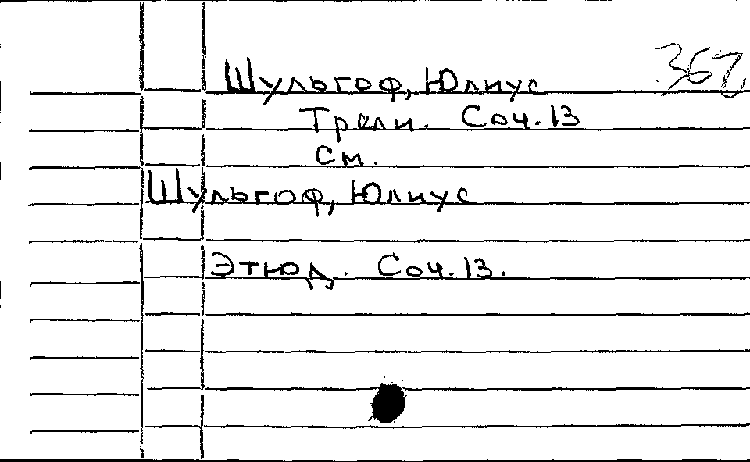 367
Шульгоф, Юлиус
Трели. Соч. 13
см.
Шульгоф, Юлиус
Этюд. Соч. 13.